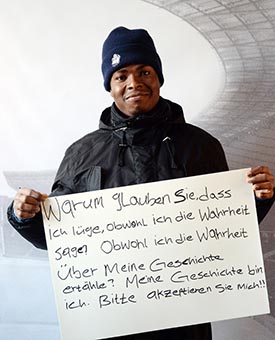 Warum glauben Sie, dass
ich lüge, obwohl ich die Wahrheit
sage? Obwohl ich die Wahrheit
über Meine Geschichte
erzähle? Meine Geschichte bin
ich. Bitte akzeptieren Sie Mich!!